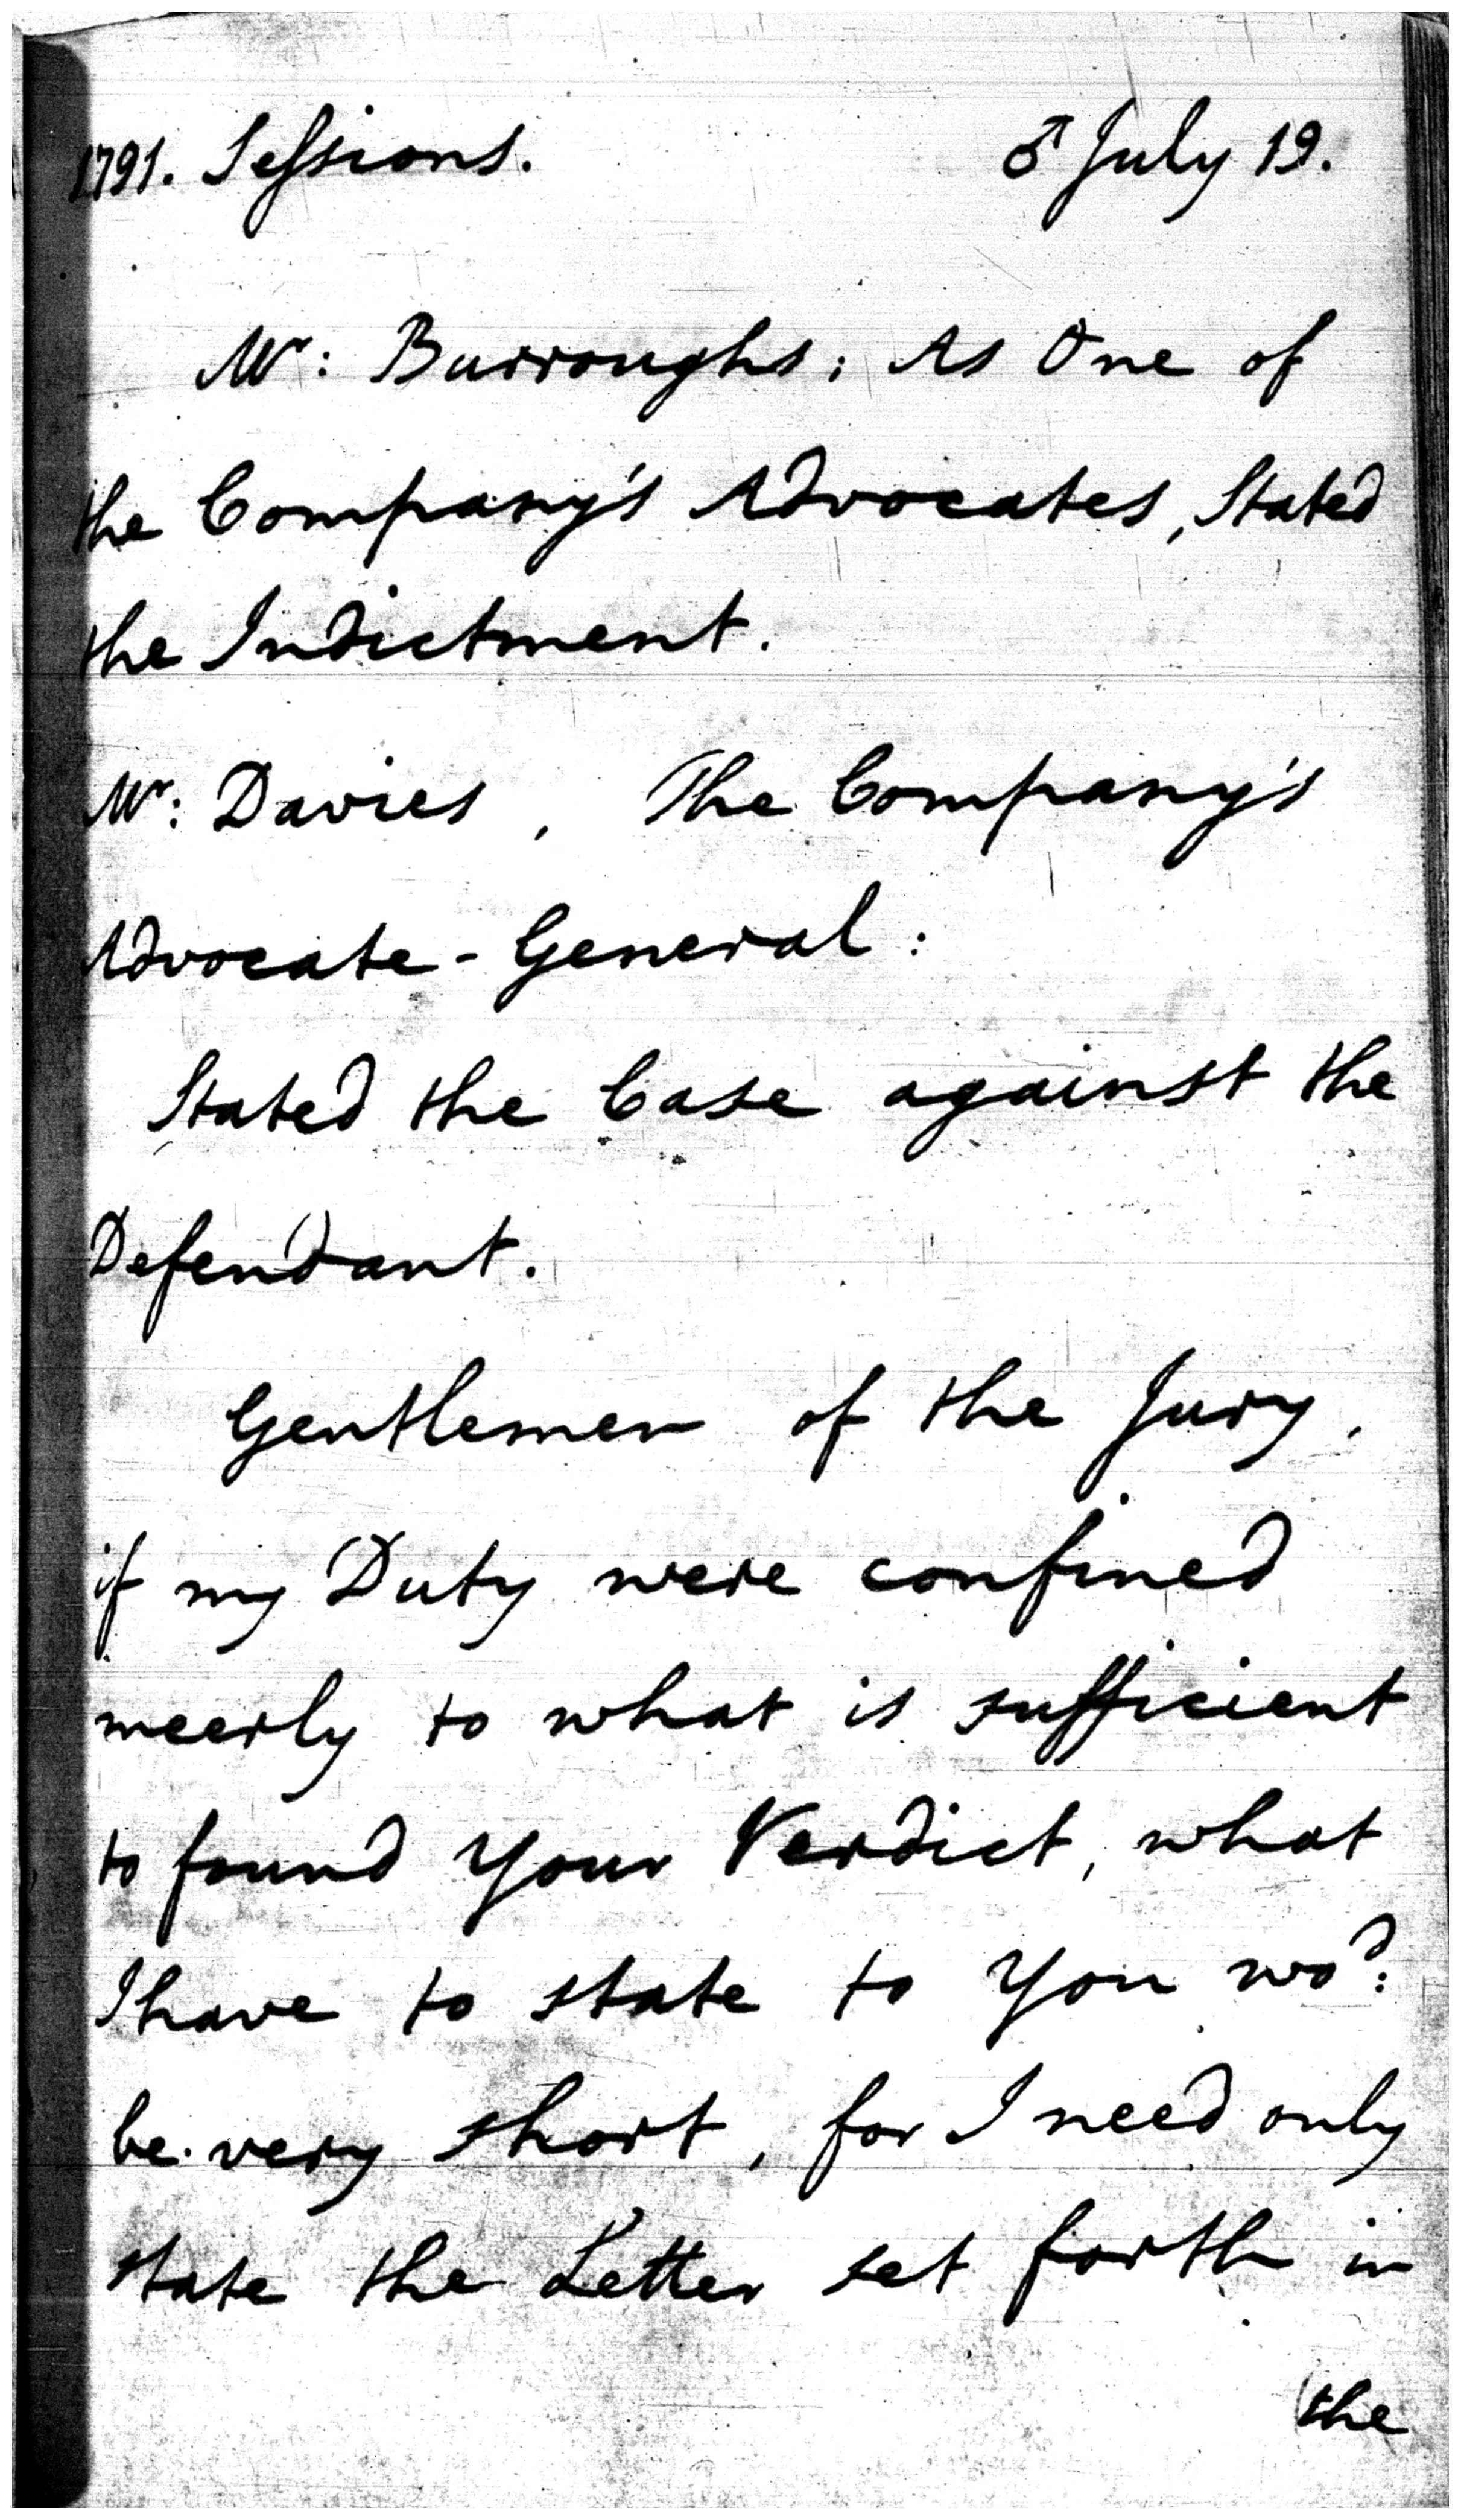 1791. Sessions. ♂ July 19.
Mr: Burroughs; As One of
the Company's Advocates, Stated
the Indictment.
Mr: Davies, The Company's
Advocate-General:
Stated the Case against the
Defendant.
Gentlemen of the Jury,
if my Duty were confined
meerly to what is sufficient
to found Your Verdict, what
I have to state to You wod:
be very short, for I need only
state the Letter set forth in
the